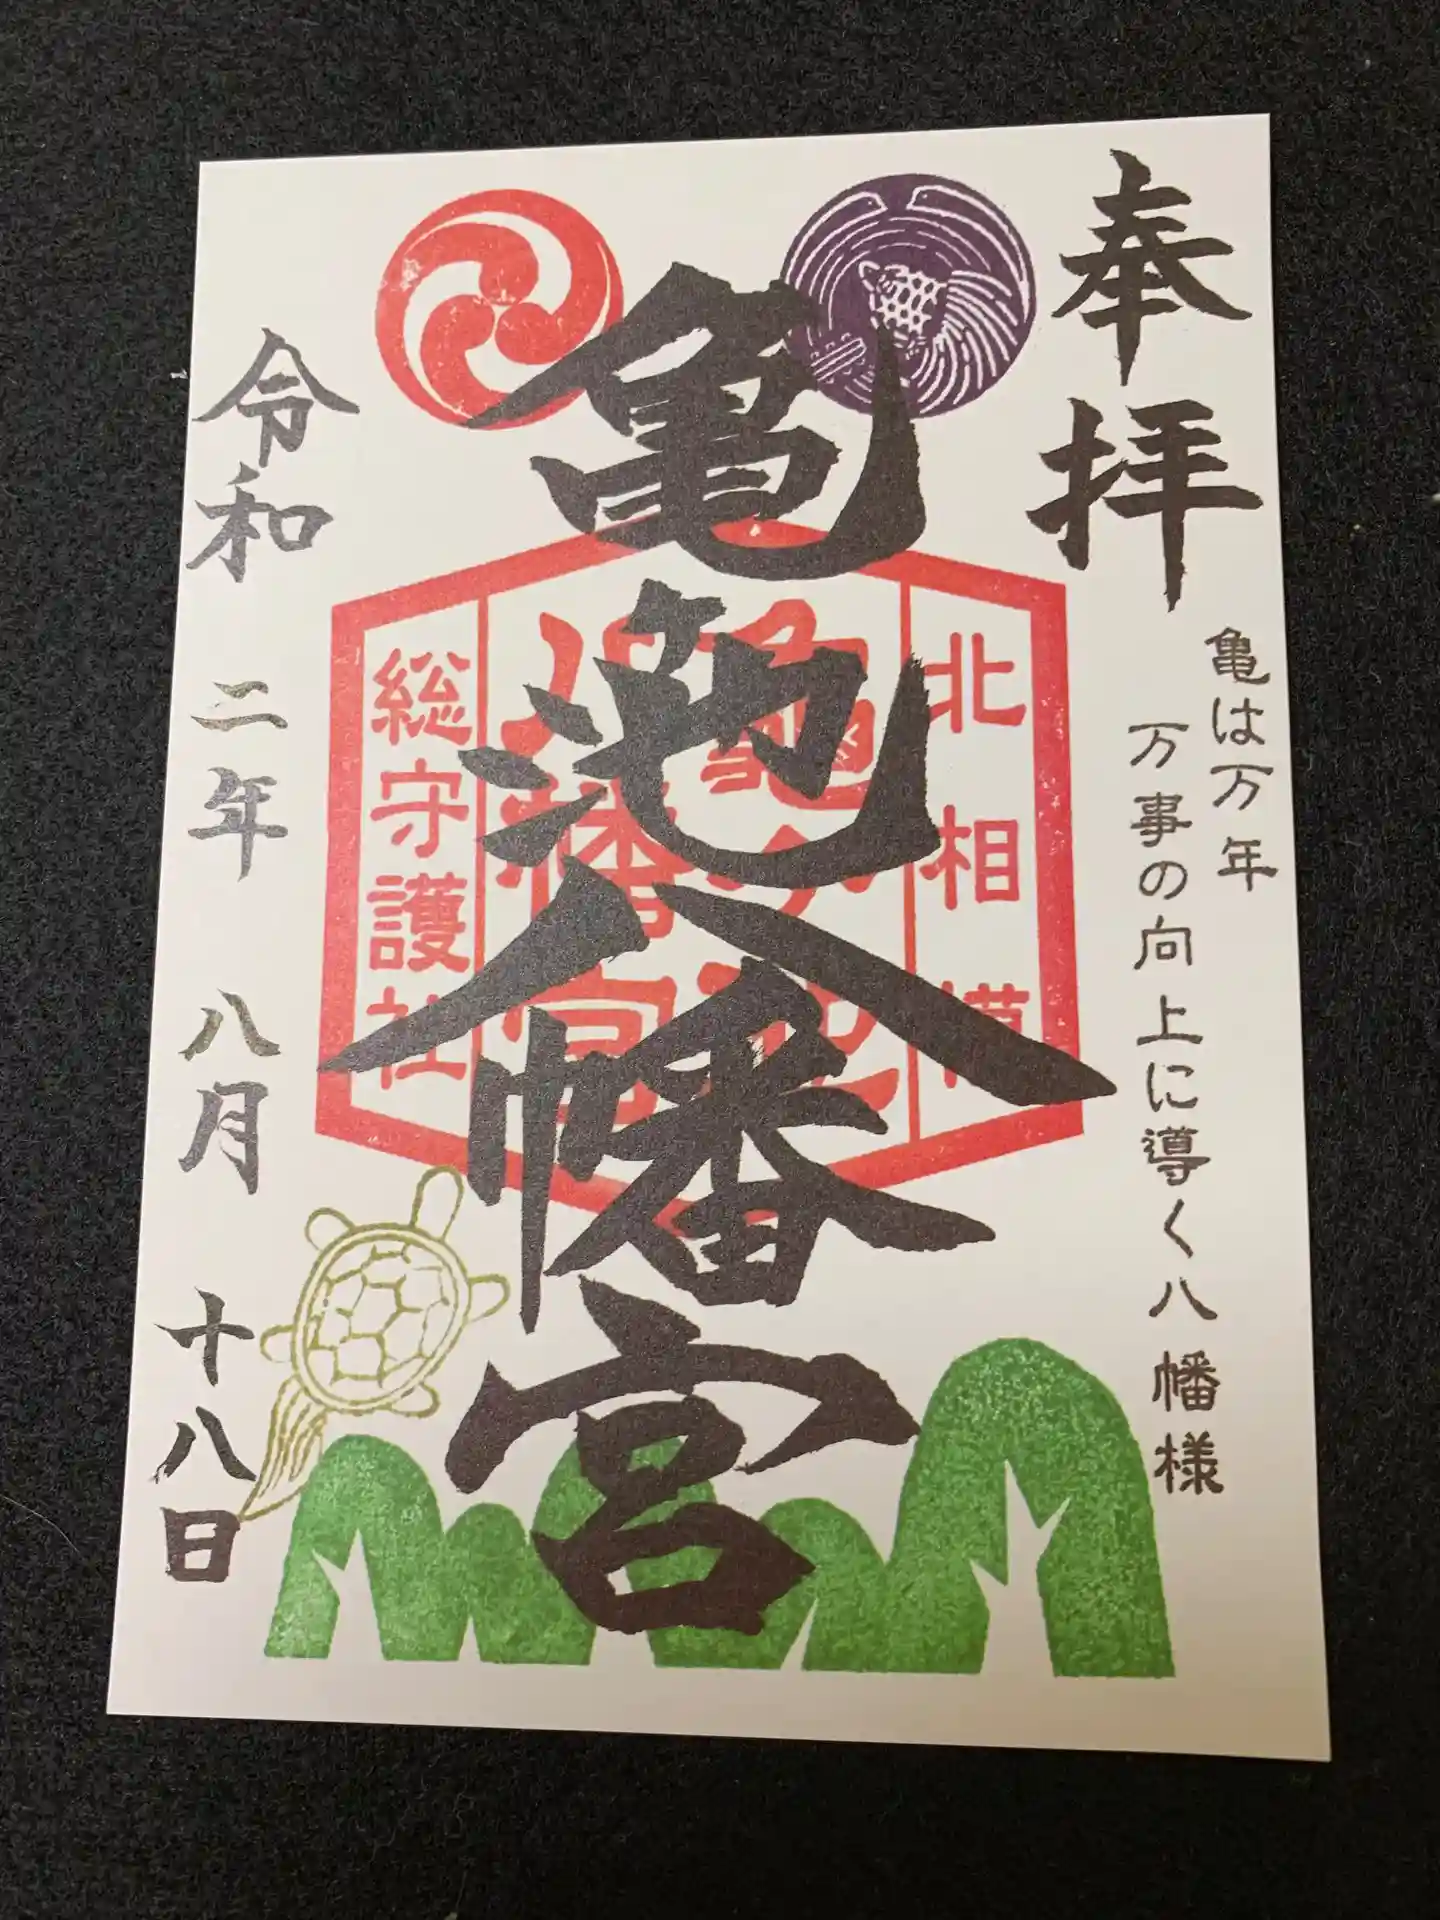 奉拝
亀は万年
万事の向上に導く八幡様
亀池八幡宮
北相模
総守護社
八幡宮
令和二年八月十八日